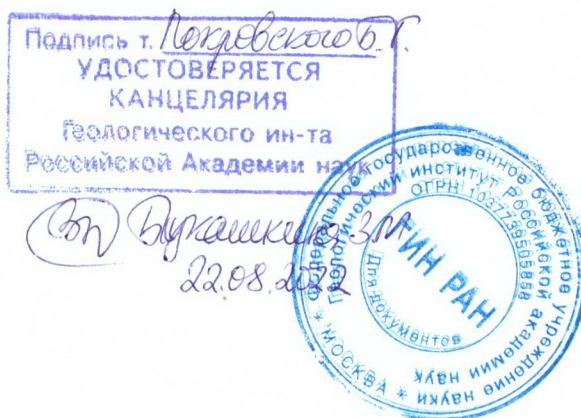 Подпись т. Покровского Б.Г.
УДОСТОВЕРЯЕТСЯ
КАНЦЕЛЯРИЯ
Геологического ин-та
Российской Академии наук
Букашкина З.М
22.08.2022
федеральное государственное бюджетное учреждение науки * МОСКВА *
Геологический институт Российской академии наук
ОГРН 1037739505858
ГИН РАН
Для документов